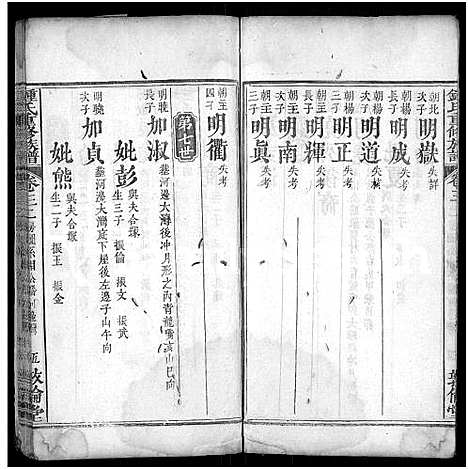 鍾氏重修族譜
朝北次子 明嶽 失詳
朝楊長子 明成 失考
朝楊次子 明道 失考
朝楊三子 明正 失考
朝主長子 明輝 失考
朝主次子 明南 失考
朝主三子 明眞 失考
朝主四子 明衢 失考
明曉長子 加淑 塟河邊大灣後冲月形之內青龍嘴亥山巳向
妣彭 與夫合塚 生三子 振倫 振文 振武
明曉次子 加貞 塟河邊大灣底下崖後左邊子山午向
妣熊 與夫合塚 生二子 振玉 振金
鍾氏重修族譜
敦倫堂